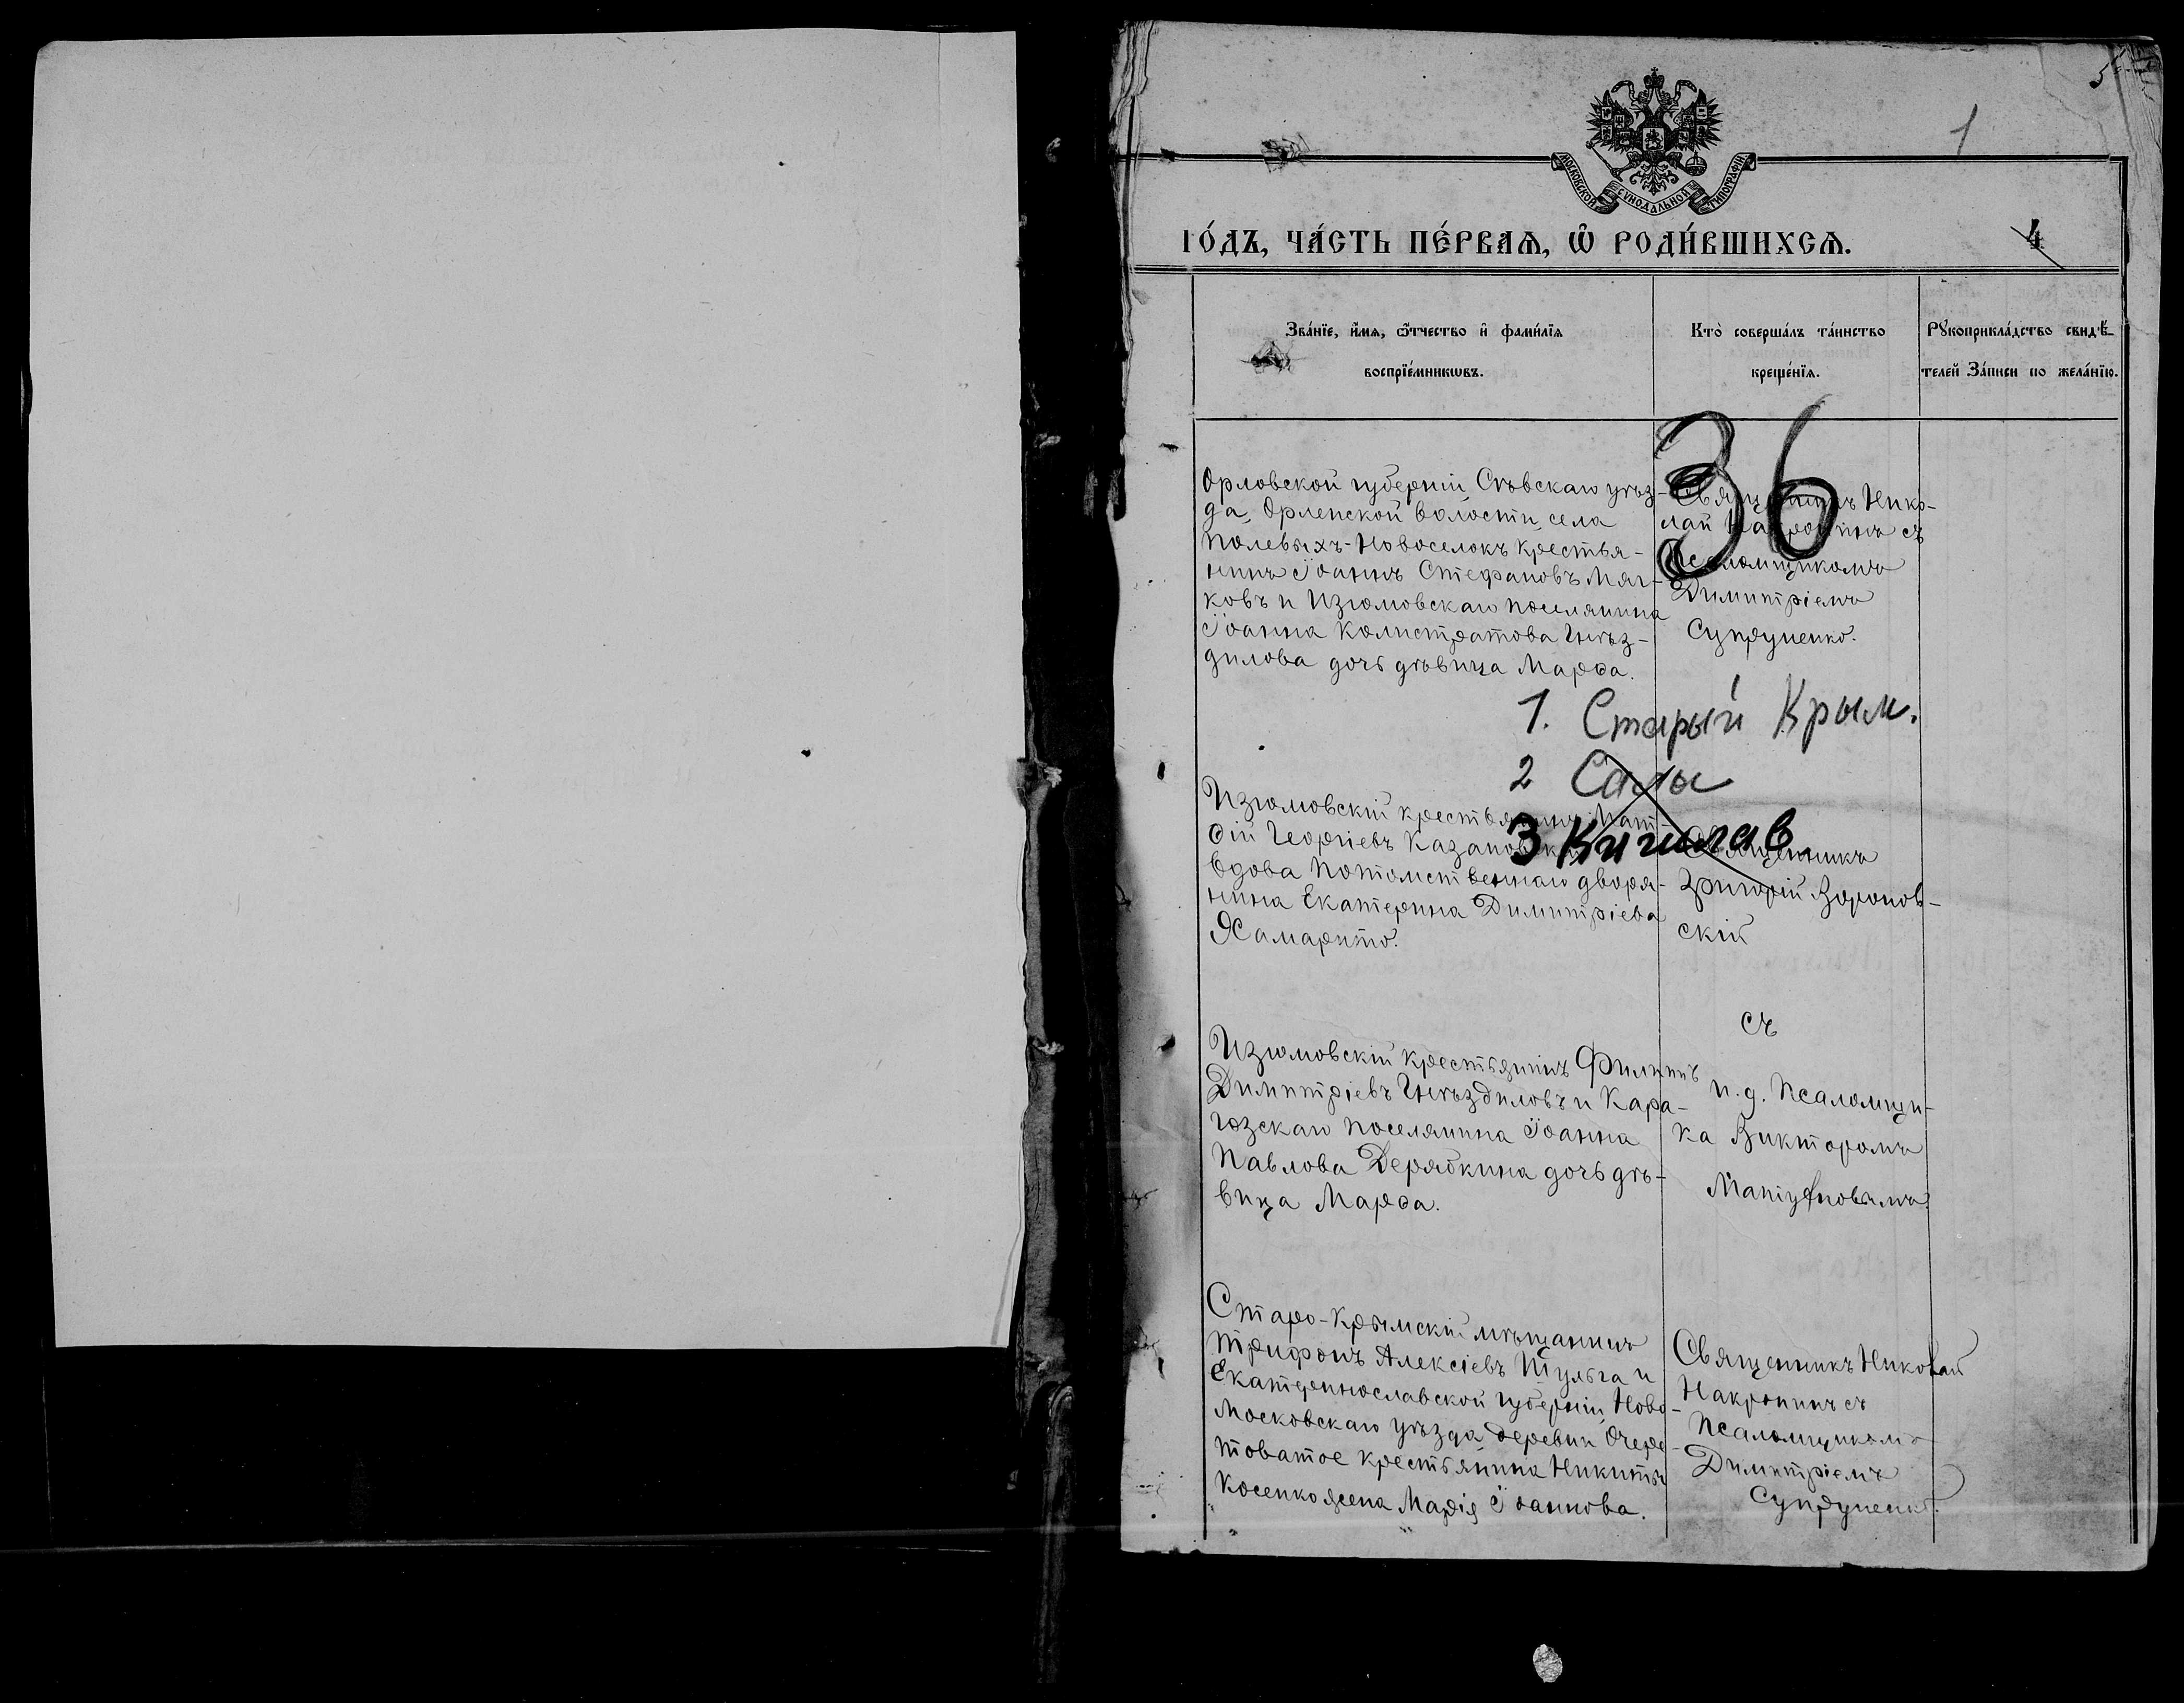 5
1
МОСКОВСКОЙ СѴНОДАЛЬНОЙ ТИПОГРАФІИ
ГО́ДЪ, ЧА́СТЬ ПЕ́РВАѦ, Ѡ҆ РОДИ́ВШИХСѦ.
4
Зва́нїе, и҆́мѧ, ѻ҆́тчество и҆ фамѝлїѧ
воспрїе́мникѡвъ.
Кто̀ соверша́лъ та́инство
креще́нїѧ.
Рꙋкоприкла́дство свидѣ́-
телей За́писи по жела́нїю.
36
Орловской губерніи, Сѣвскаго уѣз-
да, Орленской волости, села
Полевыхъ-Новоселокъ крестья-
нинъ Іоаннъ Стефановъ Мяг-
ковъ и Изюмовскаго поселянина
Іоанна Калистратова Гнѣз-
дилова дочь дѣвица Марѳа.
Нико-
лай съ
Псаломщикомъ
Димитріемъ
Супруненко.
1. Старый Крым.
2 Салы
3 Кишлав
Изюмовскій крестьянинъ Мат-
ѳій Георгіевъ
вдова потомственнаго дворя-
нина Екатерина Димитріева
Священникъ
Григорій Воронов-
скій
съ
и. д. Псаломщи-
ка Викторомъ
Изюмовскій крестьянинъ Филиппъ
Димитріевъ Гнѣздиловъ и Кара-
гозскаго поселянина Іоанна
Павлова Дерябкина дочь дѣ-
вица Марѳа.
Старо-Крымскій мѣщанинъ
Трифонъ Алексіевъ Шульга и
Екатеринославской губерніи, Ново-
московскаго уѣзда, деревни Очере-
товатое крестьянина Никиты
Косенко жена Марія Іоаннова.
Священникъ Николай
Накропинъ съ
Псаломщикомъ
Димитріемъ
Супруненко.